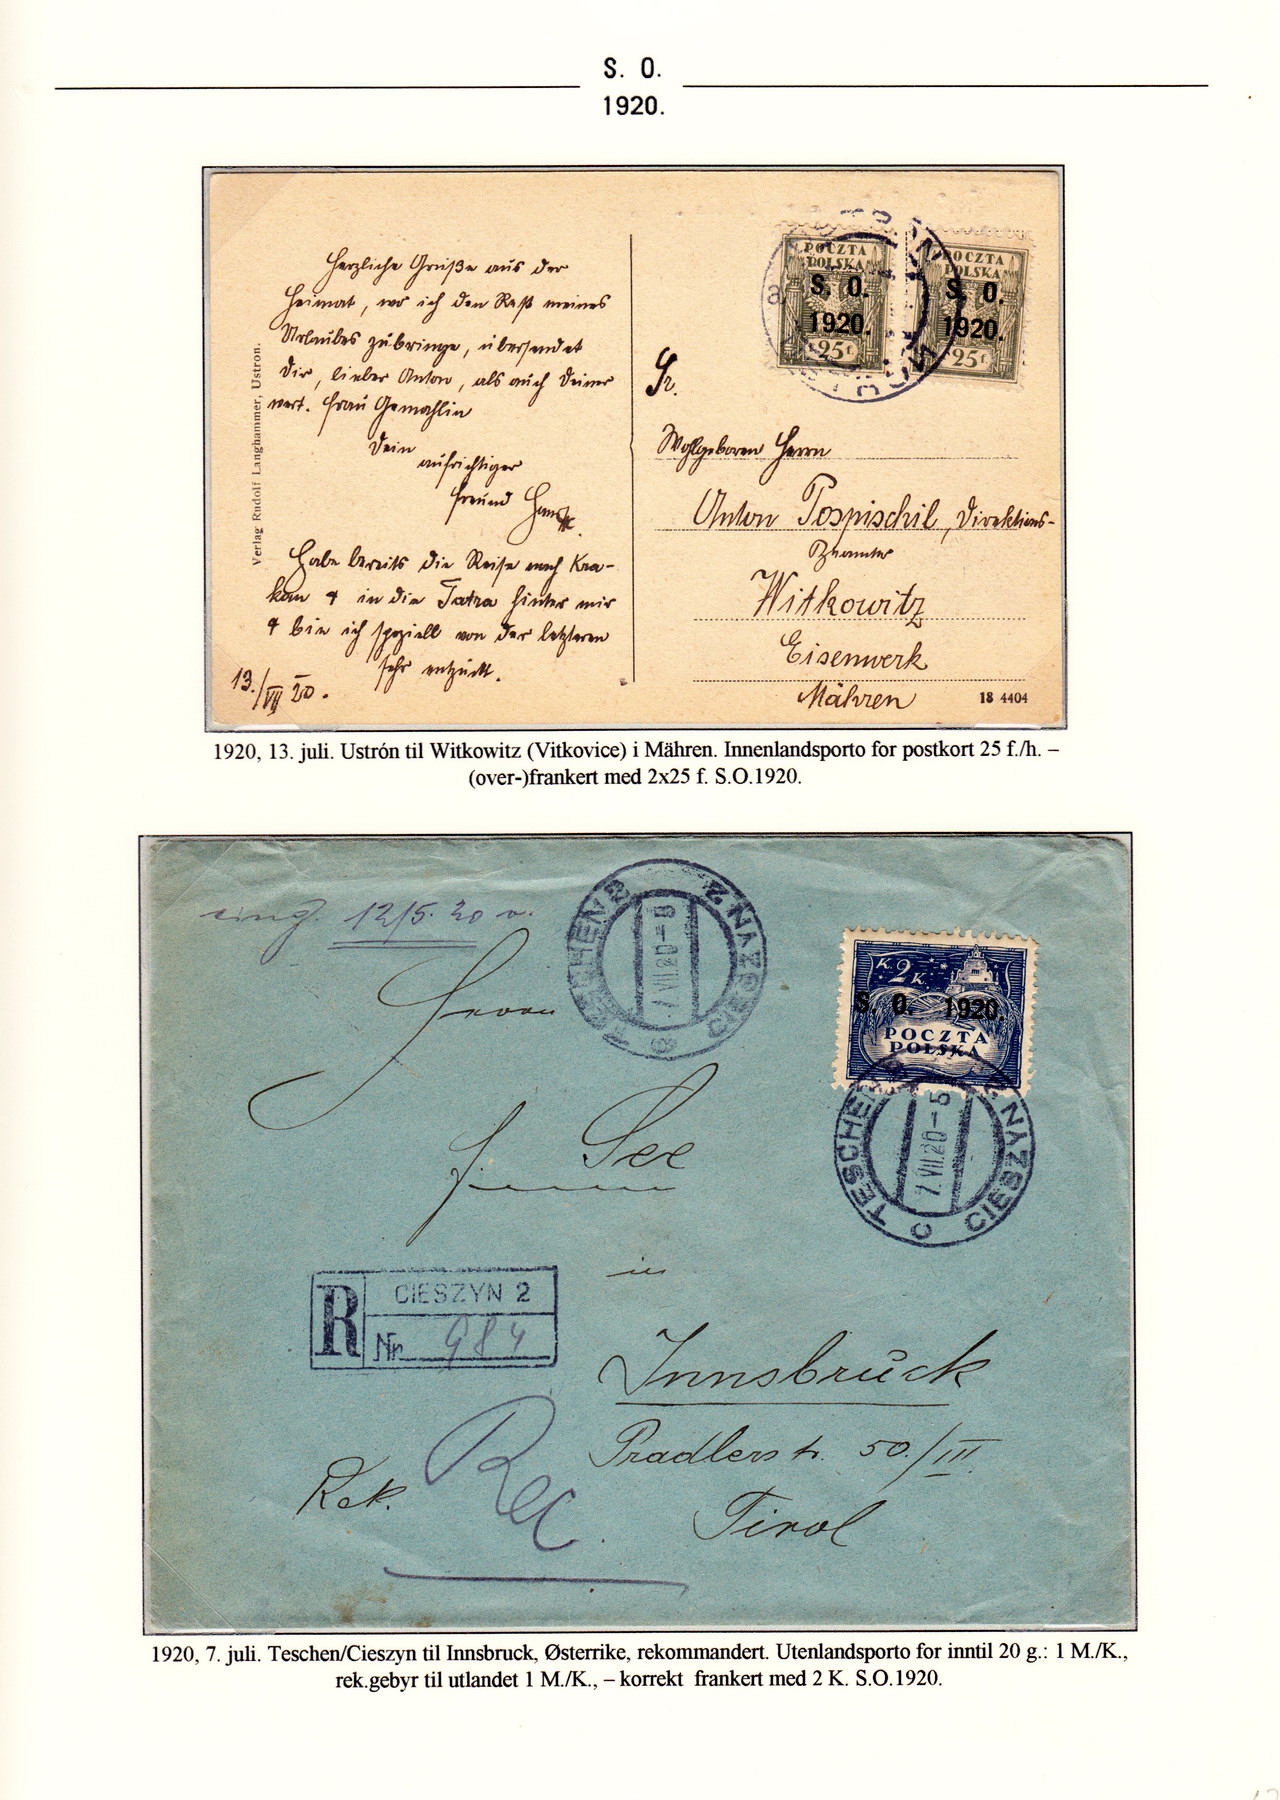 S. O.
1920.
Herzliche Grüße aus der
Heimat, wo ich den Rest meines
Urlaubes zubringe, übersendet
Dir, lieber Anton, als auch Deiner
wert. Frau Gemahlin
Dein
aufrichtiger
Freund Hans
Habe bereits die Reise nach Kra-
kau & in die Tatra hinter mir
& bin ich speziell von der letzteren
sehr entzückt.
13./VII 20.
Verlag Rudolf Langhammer, Ustron.
POCZTA
POLSKA
S. O.
1920.
25 f
POCZTA
POLSKA
S. O.
1920.
25 f
Sr.
Wohlgeboren Herrn
Anton Pospischil, Direktions-
Beamter
Witkowitz
Eisenwerk
Mähren
18 4404
1920, 13. juli. Ustrón til Witkowitz (Vitkovice) i Mähren. Innenlandsporto for postkort 25 f./h. –
(over-)frankert med 2x25 f. S.O.1920.
eing. 12/5. 20
TESCHEN 2 CIESZYN 2
7.VII.20-5
c
K. 2 K.
S. O. 1920.
POCZTA
POLSKA
TESCHEN 2 CIESZYN 2
7.VII.20-5
c
Herrn
See
in
R CIESZYN 2
Nr. 984
Innsbruck
Pradlerstr. 50/III
Tirol
Rek.
Rec
1920, 7. juli. Teschen/Cieszyn til Innsbruck, Østerrike, rekommandert. Utenlandsporto for inntil 20 g.: 1 M./K.,
rek.gebyr til utlandet 1 M./K., – korrekt frankert med 2 K. S.O.1920.